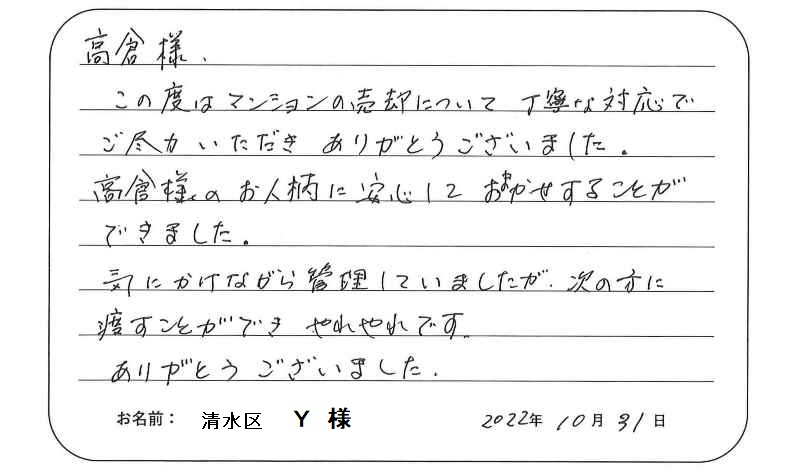 高倉様、
この度はマンションの売却について丁寧な対応で
ご尽力いただきありがとうございました。
高倉様のお人柄に安心しておまかせすることが
できました。
気にかけながら管理していましたが、次の方に
渡すことができやれやれです。
ありがとうございました。
お名前： 清水区 Y 様 2022年 10月 31日